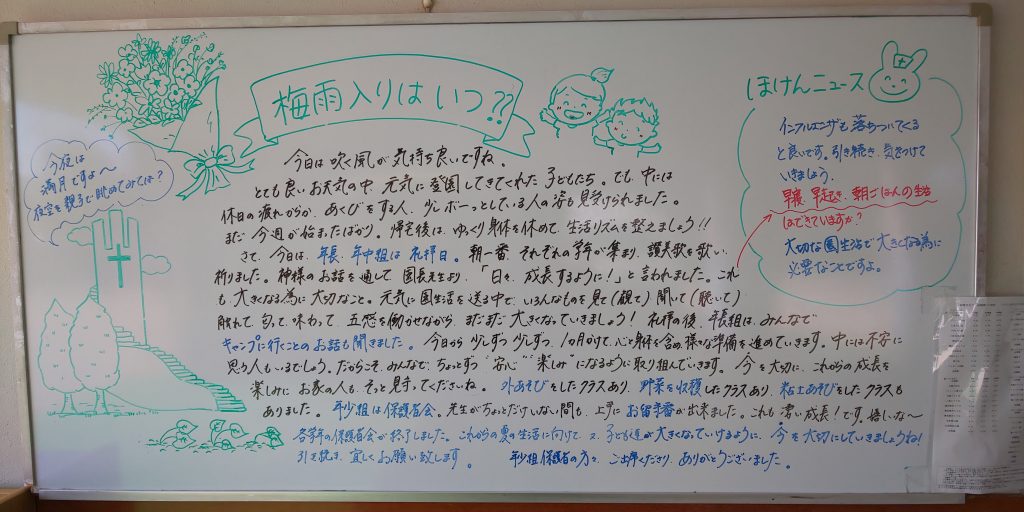 梅雨入りはいつ??
今夜は
満月ですよ〜
夜空を親子で眺めてみては?
今日は吹く風が気持ち良いですね。
とても良いお天気の中、元気に登園してきてくれた子どもたち。でも、中には
休日の疲れからか、あくびをする人、少しボーっとしている人の姿も見受けられました。
まだ今週が始まったばかり。帰宅後は、ゆっくり身体を休めて、生活リズムを整えましょう!!
さて、今日は、年長、年中組は礼拝日。朝一番、それぞれの学年が集まり、讃美歌を歌い、
祈りました。神様のお話を通して、園長先生より、「日々、成長するように!」と言われました。これ
も、大きくなる為に大切なこと。元気に園生活を送る中で、いろんなものを見て(観て)聞いて(聴いて)
触れて、匂って、味わって、五感を働かせながら、まだまだ大きくなっていきましょう!礼拝の後、年長組は、みんなで
キャンプに行くことのお話も聞きました。今日から少しずつ少しずつ、1ヶ月かけて、心と身体を含め、様々な準備を進めていきます。中には不安に
思う人もいるでしょう。だからこそ、みんなで、ちょっとずつ"安心""楽しみ"になるように取り組んでいきます。今を大切に、これからの成長を
楽しみにお家の人も、そっと見守ってくださいね。外あそびをしたクラスあり、野菜を収穫したクラスあり、粘土あそびをしたクラスも
ありました。年少組は保護者会。先生がちょっとだけいない間も、上手にお留守番が出来ました。これも凄い成長!です。嬉しいな〜
各学年の保護者会が終了しました。これからの夏の生活に向けて、又、子ども達が大きくなっていけるように、今を大切にしていきましょうね!
引き続き、宜しくお願い致します。 年少組保護者の方々、ご出席くださり、ありがとうございました。
ほけんニュース
インフルエンザも落ちついてくる
と良いです。引き続き、気をつけて
いきましょう。
早寝、早起き、朝ごはんの生活
はできていますか?
大切な園生活で大きくなる為に
必要なことですよ。